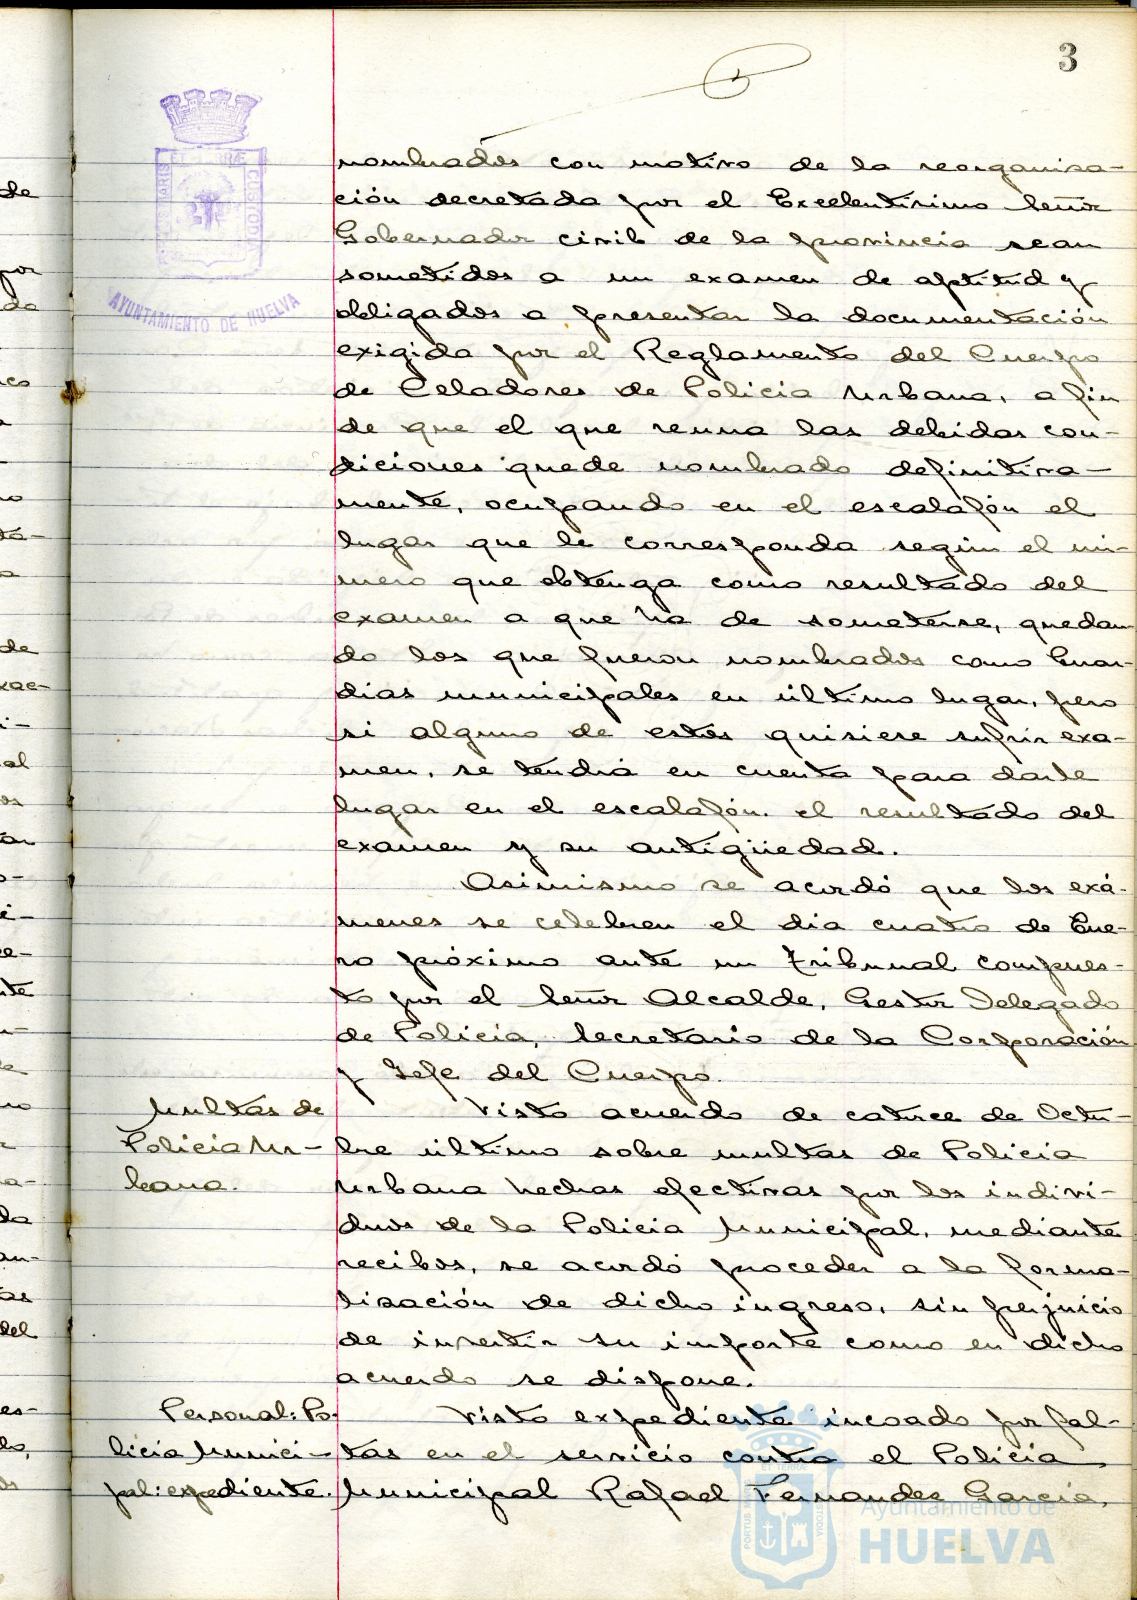 3
AYUNTAMIENTO DE HUELVA
nombrados con motivo de la reorganisa-
ción decretada por el Excelentísimo Señor
Gobernador civil de la provincia sean
sometidos a un examen de aptitud y
obligados a presentar la documentación
exigida por el Reglamento del Cuerpo
de Celadores de Policia Urbana, a fin
de que el que reuna las debidas con-
diciones quede nombrado definitiva-
mente, ocupando en el escalafón el
lugar que le corresponda según el nú-
mero que obtenga como resultado del
examen a que ha de someterse, quedan
do los que fueron nombrados como Guar-
dias municipales en último lugar, pero
si alguno de estos quisiere sufrir exa-
men, se tendrá en cuenta para darle
lugar en el escalafón el resultado del
examen y su antigüedad.
Asimismo se acordó que los exá-
menes se celebren el dia cuatro de Ene-
ro próximo ante un tribunal compues-
to por el Señor Alcalde, Gestor Delegado
de Policia, Secretario de la Corporación
y Gefe del Cuerpo.
Multas de
Policia Ur-
bana.
Visto acuerdo de catorce de Octu-
bre último sobre multas de Policia
Urbana hechas efectivas por los indivi-
duos de la Policia Municipal, mediante
recibos, se acordó proceder a la forma-
lisación de dicho ingreso, sin perjuicio
de invertir su importe como en dicho
acuerdo se dispone.
Personal: Po-
licia Munici-
pal: expediente.
Visto expediente incoado por fal-
tas en el servicio contra el Policia
Municipal Rafael Fernandez Garcia,
Ayuntamiento de
HUELVA